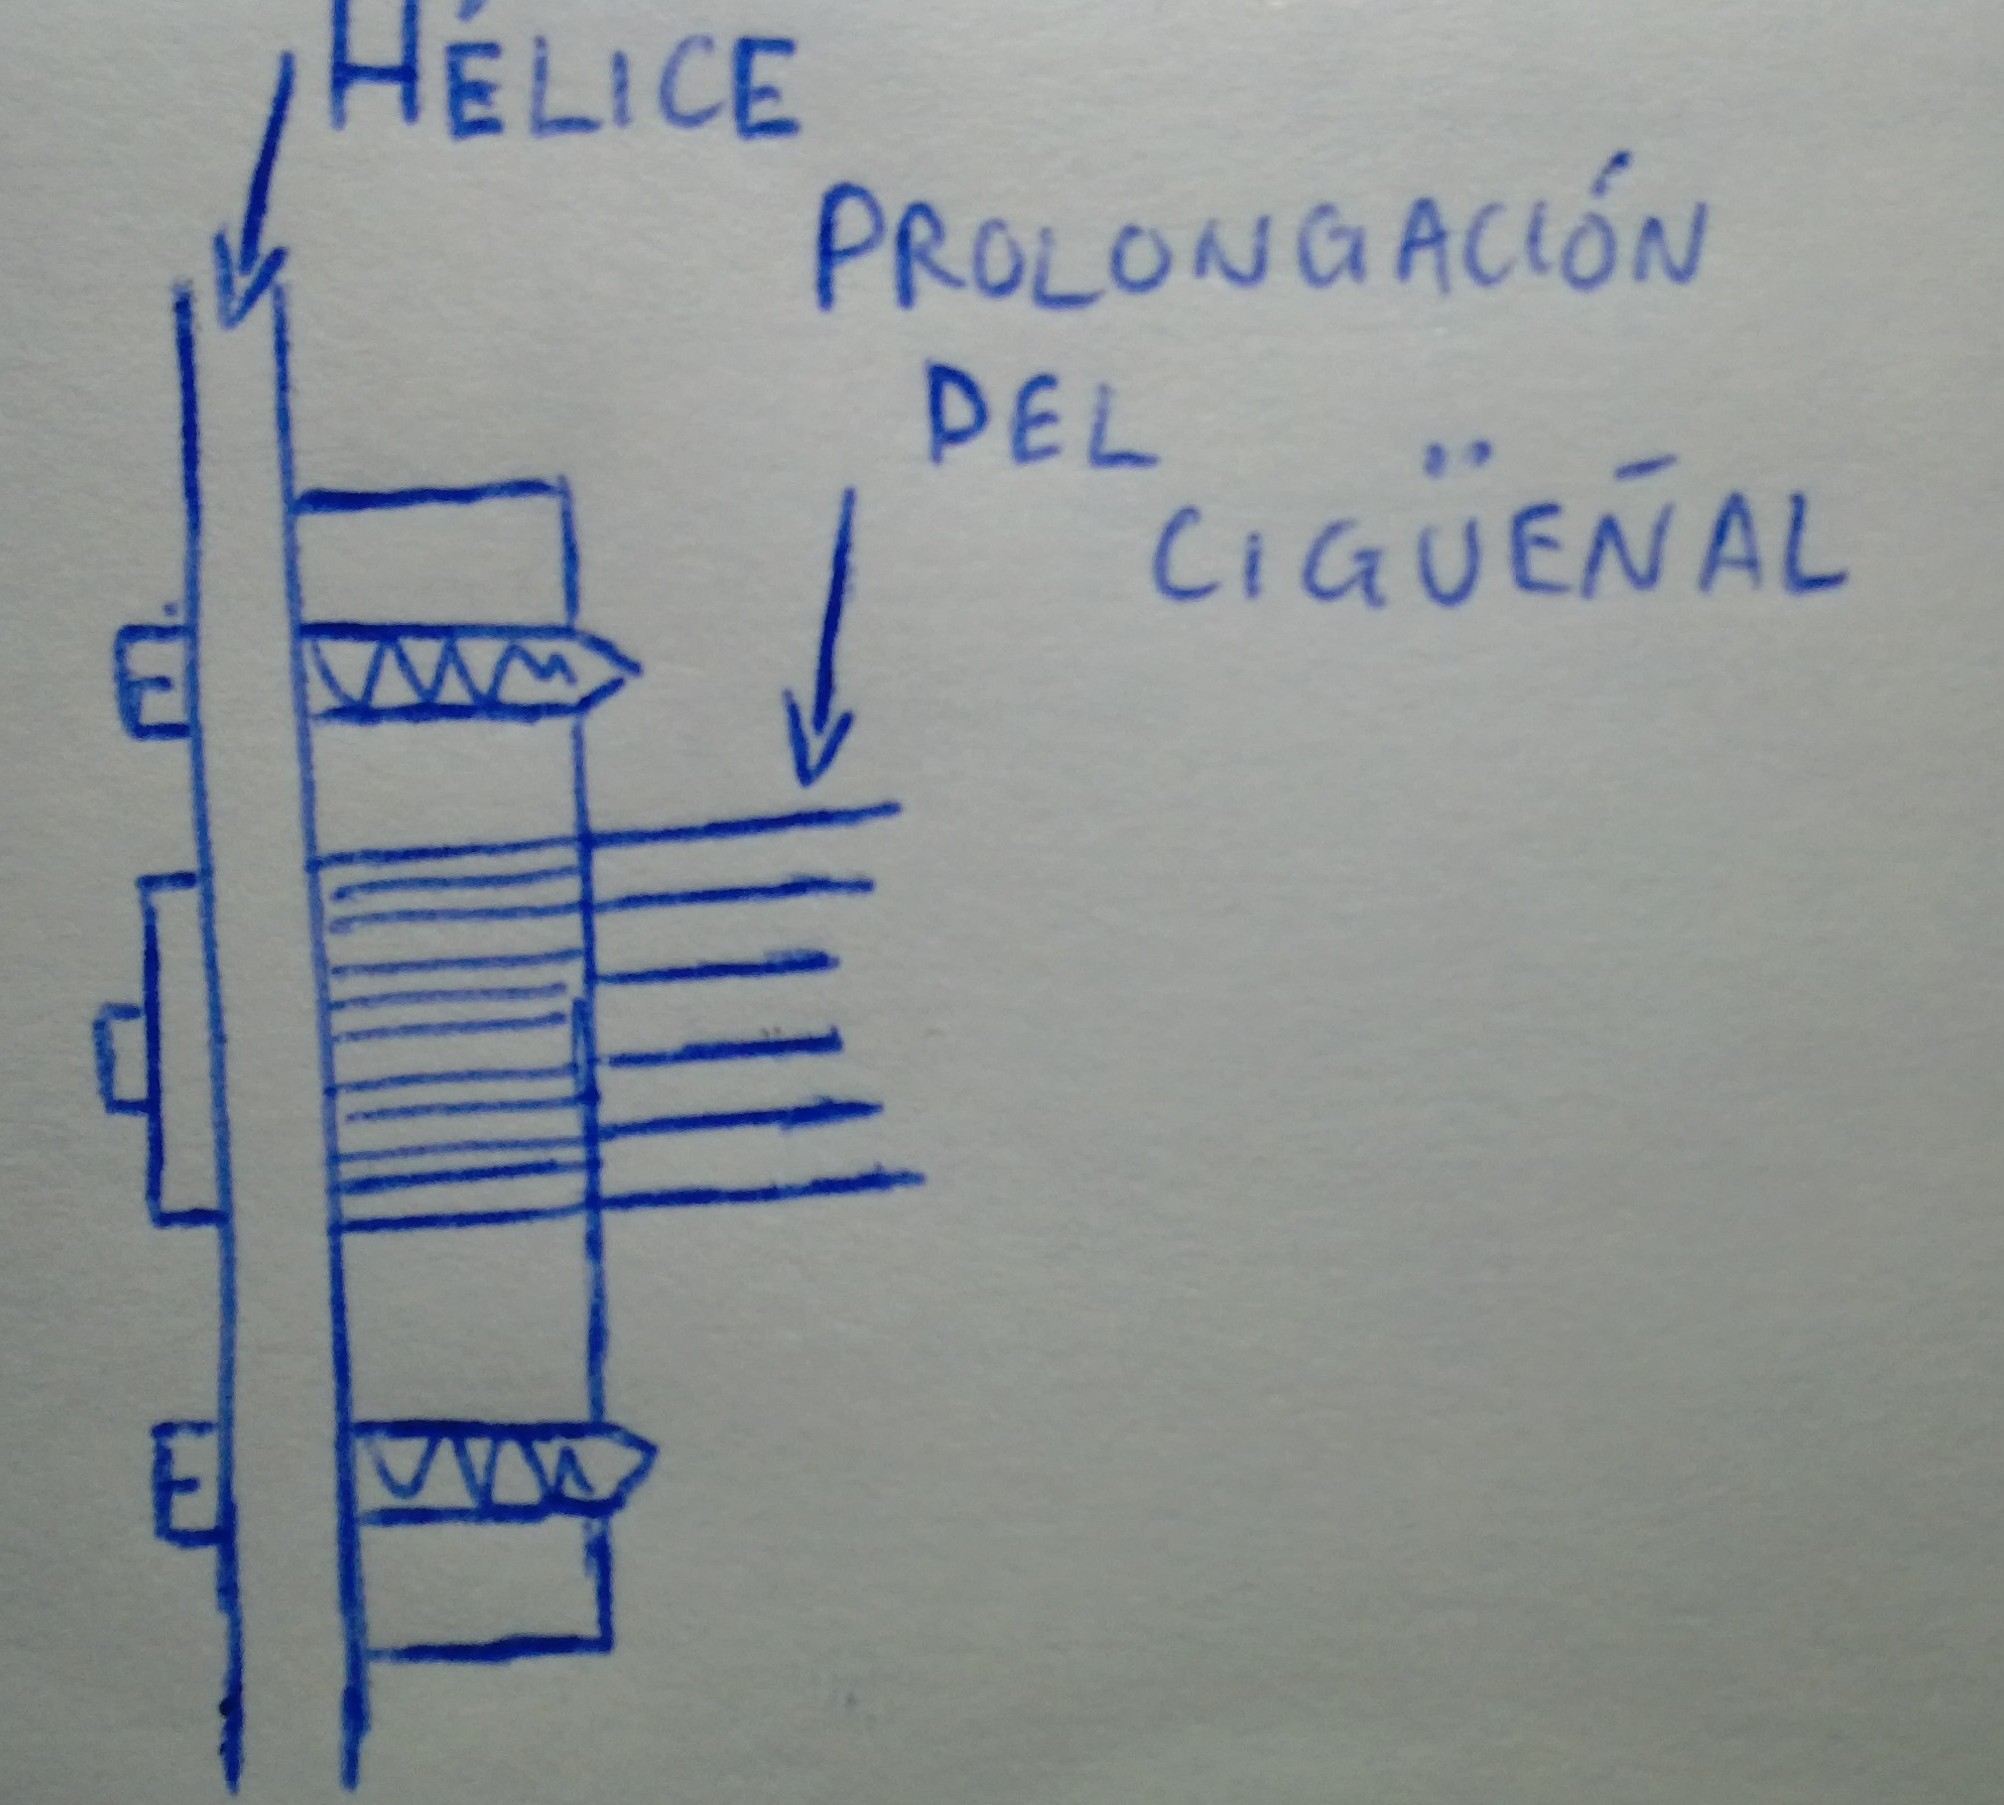 HÉLICE
PROLONGACIÓN
DEL
CIGÜEÑAL